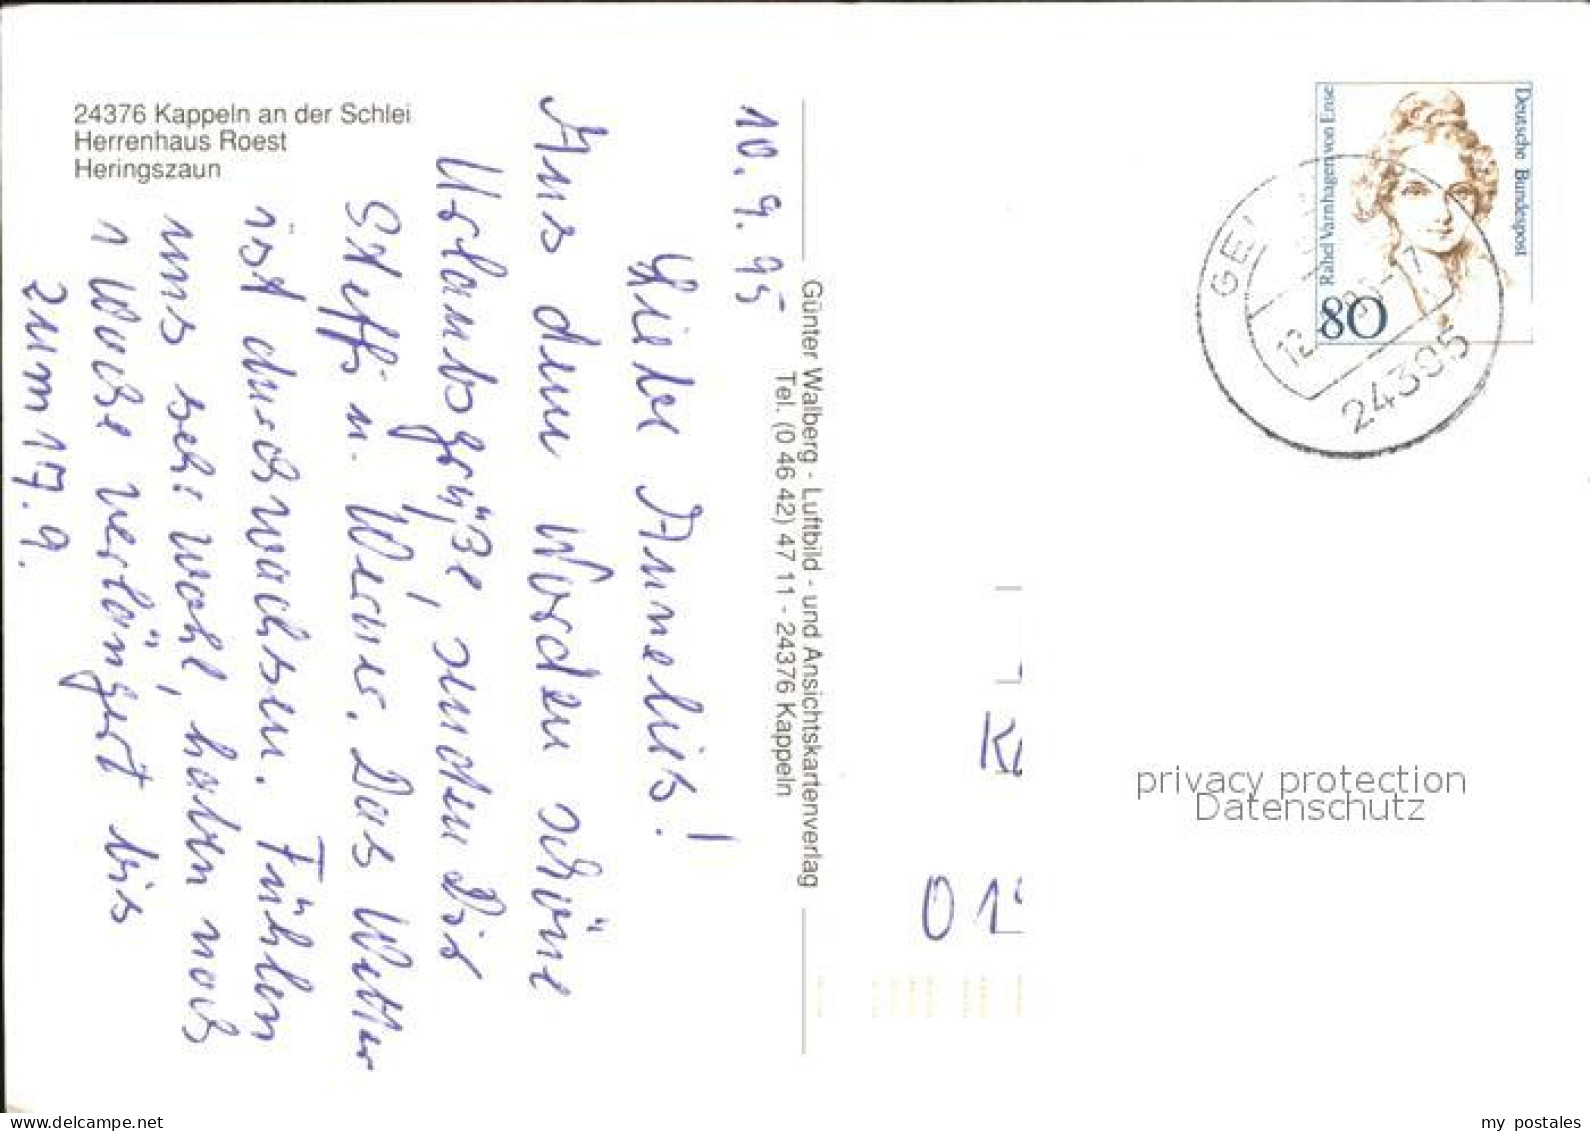 24376 Kappeln an der Schlei
Herrenhaus Roest
Heringszaun
10.9.95
Liebe Annelies!
Aus dem Norden schöne
Urlaubsgrüße, senden Dir
Steffi u. Werner. Das Wetter
ist durchwachsen. Fühlen
uns sehr wohl, haben noch
1 Woche verlängert bis
zum 17.9.
Günter Walberg - Luftbild - und Ansichtskartenverlag
Tel. (0 46 42) 47 11 - 24376 Kappeln
Deutsche Bundespost
Rahel Varnhagen von Ense
80
24395
privacy protection
Datenschutz
www.delcampe.net
my_postales